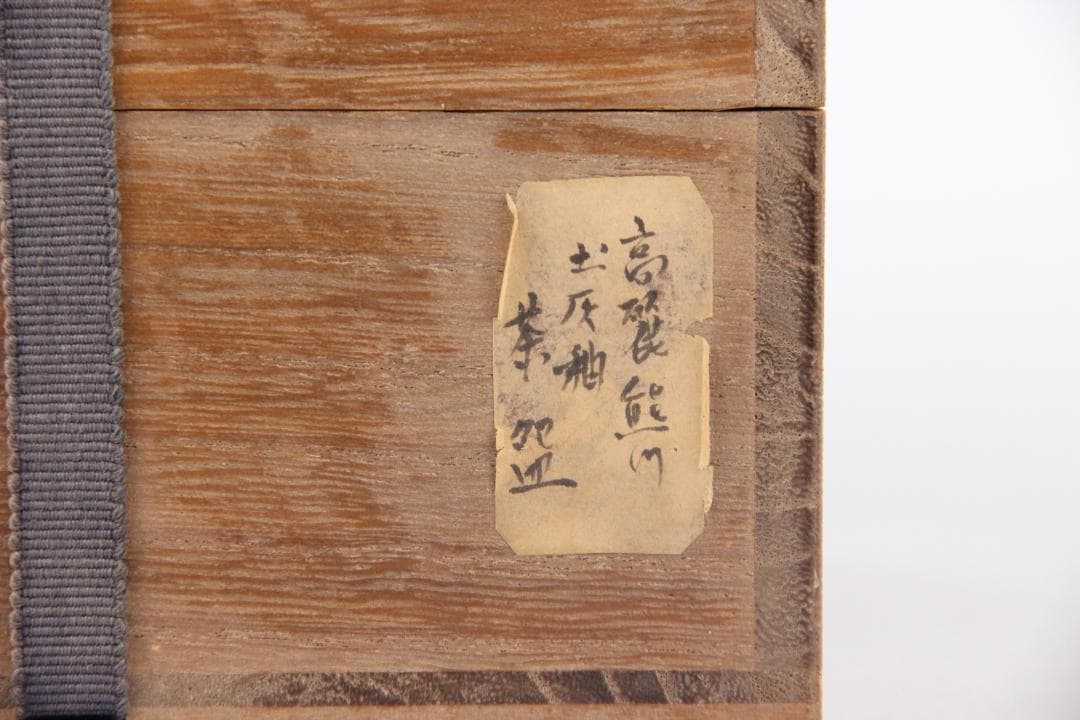 高麗熊川
土灰釉
茶盌